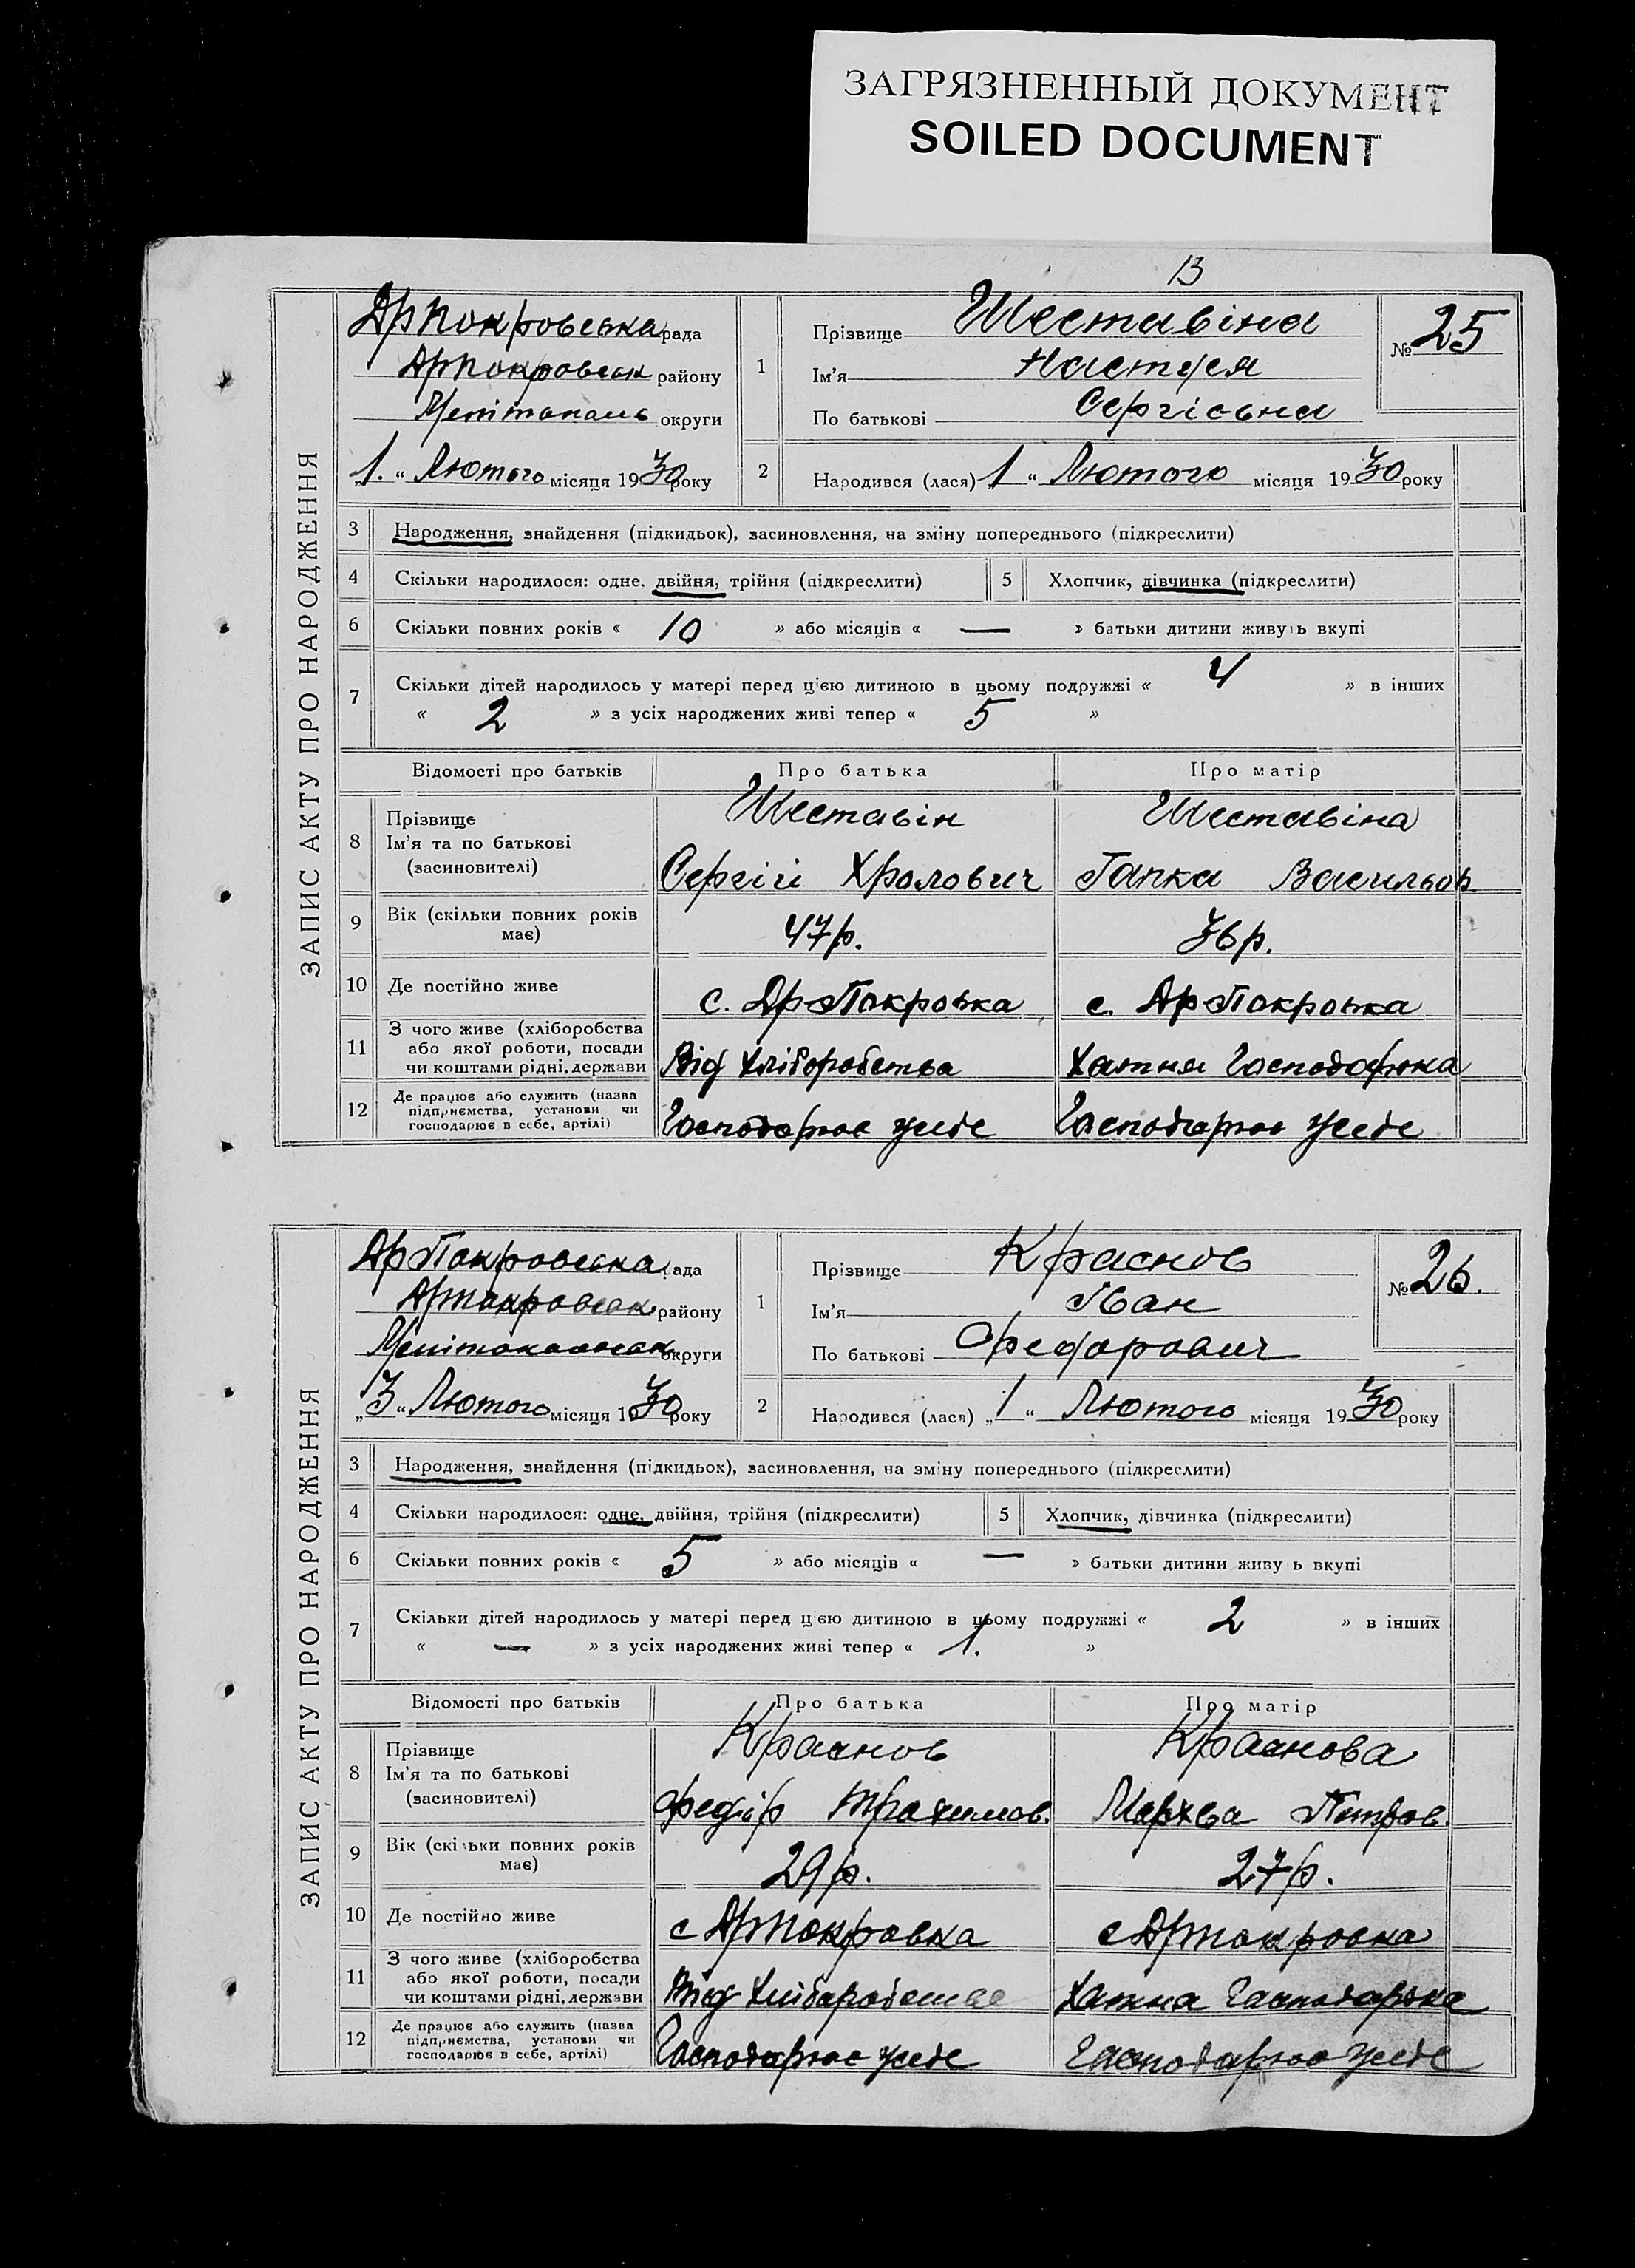 ЗАГРЯЗНЕННЫЙ ДОКУМЕНТ
SOILED DOCUMENT
13
ЗАПИС АКТУ ПРО НАРОДЖЕННЯ
АрПокровська рада
району
округи
„1.“ Лютого місяця 1930 року
1
Прізвище Шеставіна
Ім'я Настуся
По батькові Сергієвна
№ 25
2
Народився (лася) „1“ Лютого місяця 1930 року
3 Народження, знайдення (підкидьок), засиновлення, на зміну попереднього (підкреслити)
4 Скільки народилося: одне, двійня, трійня (підкреслити) 5 Хлопчик, дівчинка (підкреслити)
6 Скільки повних років « 10 » або місяців « — » батьки дитини живуть вкупі
7 Скільки дітей народилось у матері перед цією дитиною в цьому подружжі « 4 » в інших
« 2 » з усіх народжених живі тепер « 5 »
Відомості про батьків Про батька Про матір
8 Прізвище Шеставін Шеставіна
Ім'я та по батькові
(засиновителі) Сергій Гапка Васильов.
9 Вік (скільки повних років має) 47 р. 36 р.
10 Де постійно живе с. АрПокровка с. АрПокровка
11 З чого живе (хліборобства
або якої роботи, посади
чи коштами рідні, держави Від Хліборобства Хатня Господарка
12 Де працює або служить (назва
підприємства, установи чи
господарює в себе, артілі) Господарює у себе Господарює у себе
ЗАПИС АКТУ ПРО НАРОДЖЕННЯ
АрПокровська рада
району
округи
„3“ Лютого місяця 1930 року
1
Прізвище Краснов
Ім'я Іван
По батькові Федорович
№ 26.
2
Народився (лася) „1“ Лютого місяця 1930 року
3 Народження, знайдення (підкидьок), засиновлення, на зміну попереднього (підкреслити)
4 Скільки народилося: одне, двійня, трійня (підкреслити) 5 Хлопчик, дівчинка (підкреслити)
6 Скільки повних років « 5 » або місяців « — » батьки дитини живуть вкупі
7 Скільки дітей народилось у матері перед цією дитиною в цьому подружжі « 2 » в інших
« — » з усіх народжених живі тепер « 1. »
Відомості про батьків Про батька Про матір
8 Прізвище Краснов Краснова
Ім'я та по батькові
(засиновителі) Федір Трохимов. Мархва Петров.
9 Вік (скільки повних років має) 29 р. 27 р.
10 Де постійно живе с АрПокровка с АрПокровка
11 З чого живе (хліборобства
або якої роботи, посади
чи коштами рідні, держави Від Хліборобства Хатня Господарка
12 Де працює або служить (назва
підприємства, установи чи
господарює в себе, артілі) Господарює у себе Господарює у себе